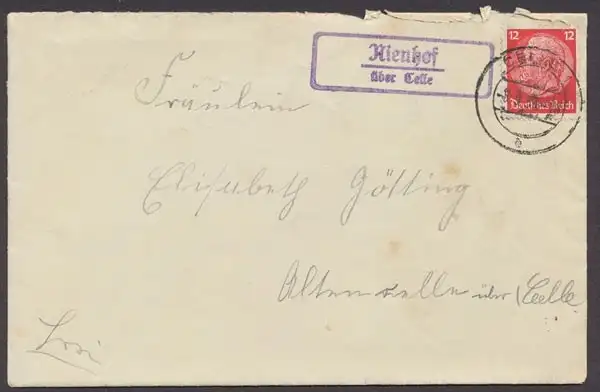 Nienhof
über Celle
12 12
Deutsches Reich
CELLE
Fräulein
Elisabeth Götting
Altencelle über Celle